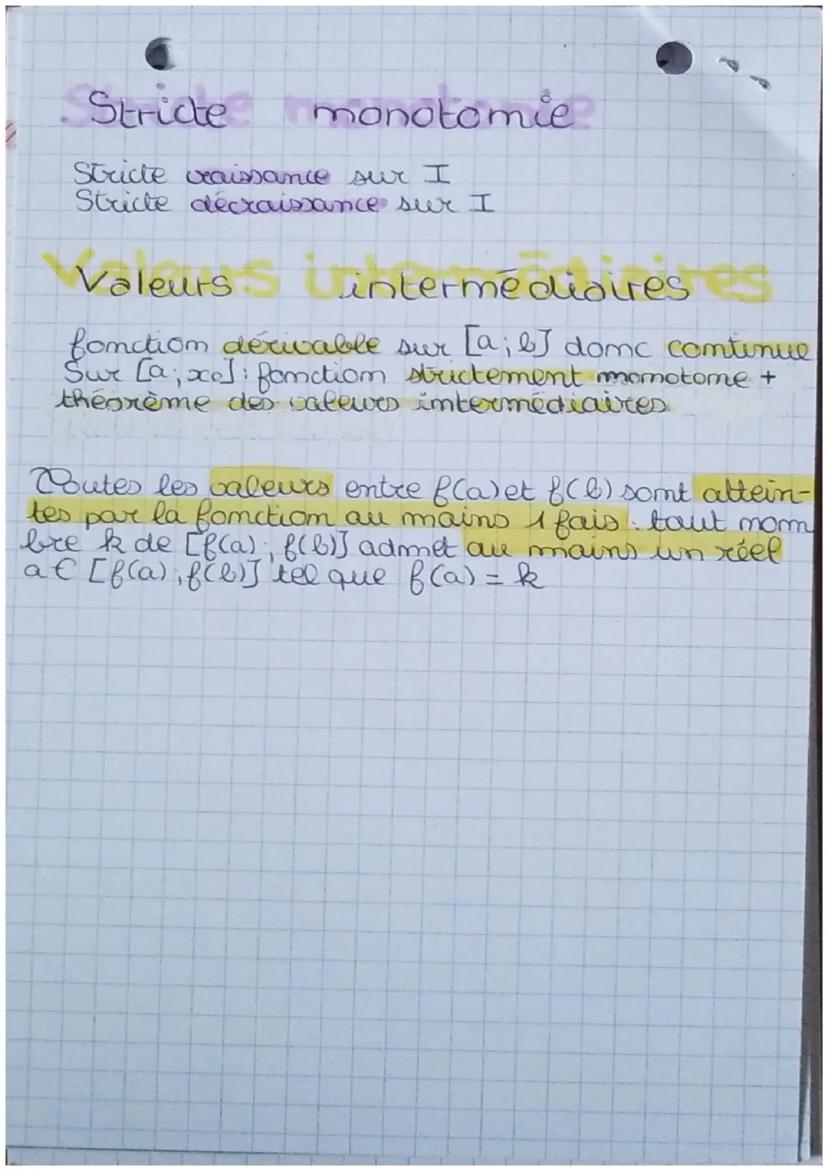 Stricte monotomie
Stricte croissance sur I
Stricte décroissance sur I
Valeurs intermédiaires
fonction dérivable sur [a; b] donc continue
Sur [a; x₀] : fonction strictement monotone +
théorème des valeurs intermédiaires
Toutes les valeurs entre f(a) et f(b) sont attein-
tes par la fonction au moins 1 fois : tout nom
bre k de [f(a); f(b)] admet au moins un réel
a ∈ [f(a); f(b)] tel que f(a) = k